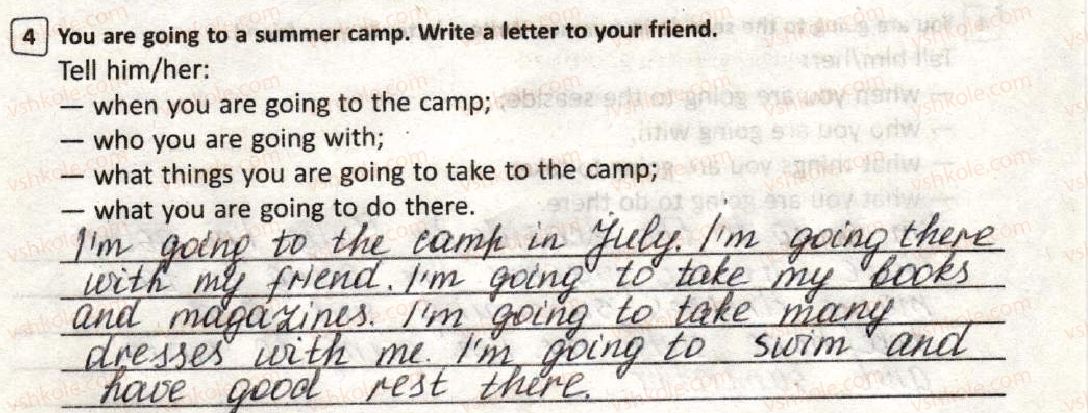 4 You are going to a summer camp. Write a letter to your friend.
Tell him/her:
— when you are going to the camp;
— who you are going with;
— what things you are going to take to the camp;
— what you are going to do there.
I'm going to the camp in July. I'm going there
with my friend. I'm going to take my books
and magazines. I'm going to take many
dresses with me. I'm going to swim and
have good rest there.